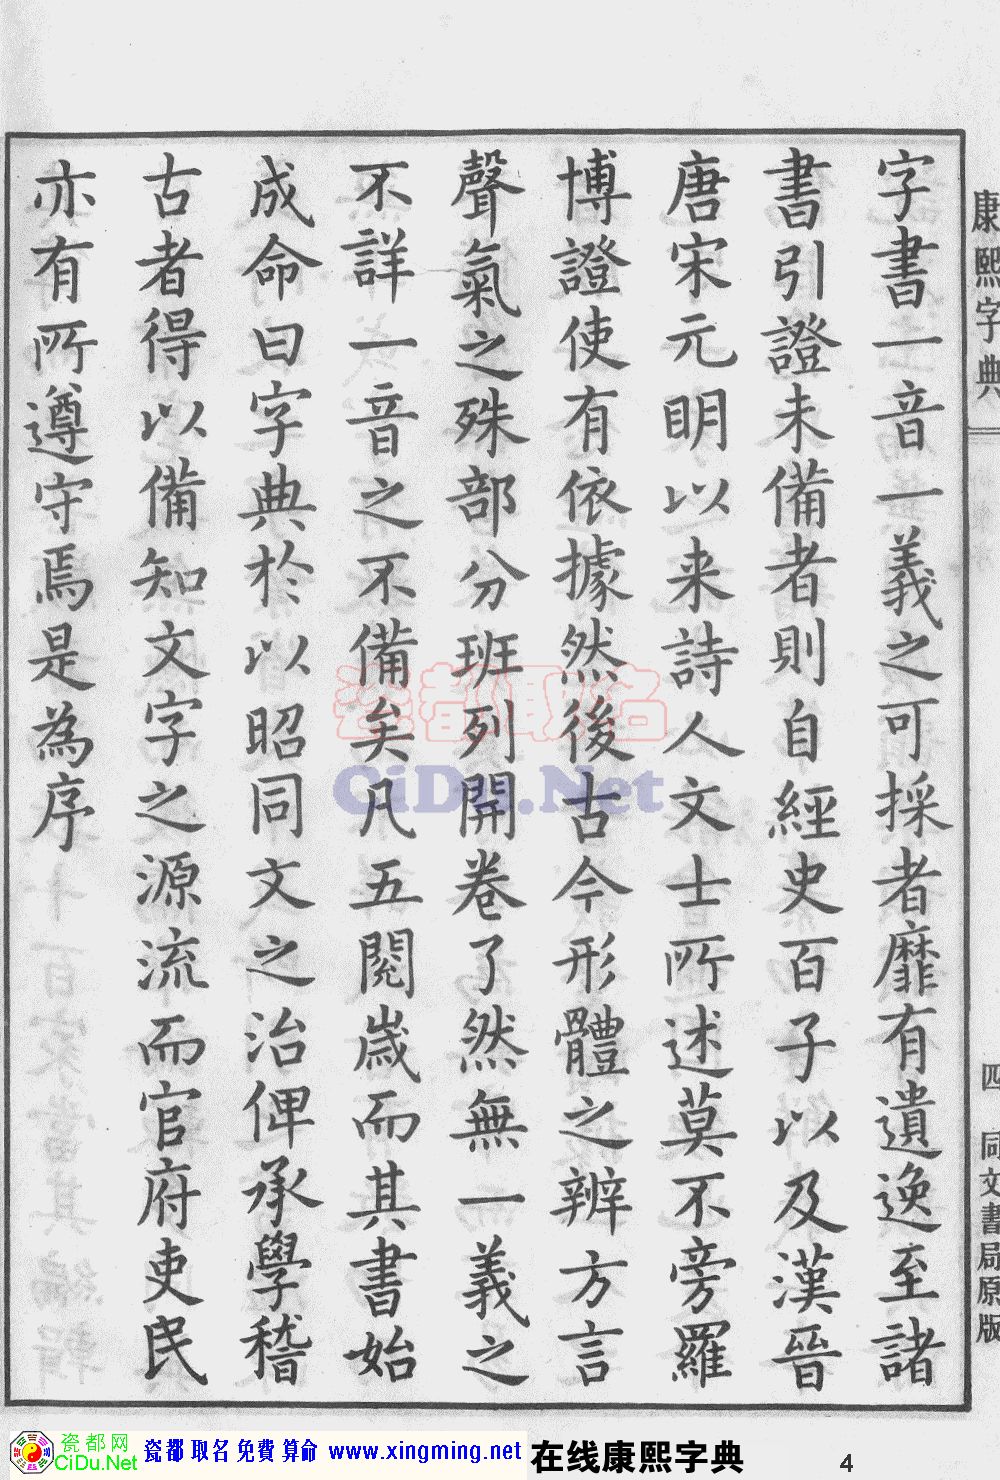 字書一音一義之可採者靡有遺逸至諸
書引證未備者則自經史百子以及漢晉
唐宋元明以来詩人文士所述莫不旁羅
博證使有依據然後古今形體之辨方言
聲氣之殊部分班列開卷了然無一義之
不詳一音之不備矣凡五閱歲而其書始
成命曰字典於以昭同文之治俾承學稽
古者得以備知文字之源流而官府吏民
亦有所遵守焉是為序
康熙字典
四 同文書局原版
瓷都取名
CiDu.Net
瓷都网
CiDu.Net
瓷都取名免費算命 www.xingming.net 在线康熙字典 4